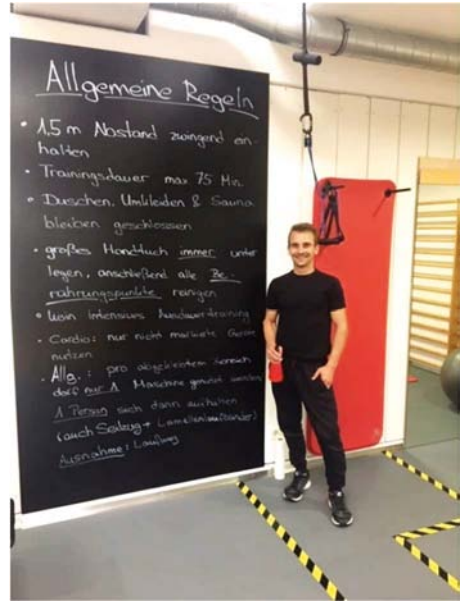 Allgemeine Regeln
• 1,5 m Abstand zwingend ein-
halten
• Trainingsdauer max 75 Min.
• Duschen, Umkleiden & Sauna
bleiben geschlossen
• großes Handtuch immer unter
legen, anschließend alle Be-
rührungspunkte reinigen
• kein intensives Ausdauertraining
• Cardio: nur nicht markierte Geräte
nutzen
• Allg.: pro abgeklebtem Bereich
darf nur 1 Maschine genutzt werden
1 Person sich dann aufhalten
(auch Seilzug +
Ausnahme: Laufweg